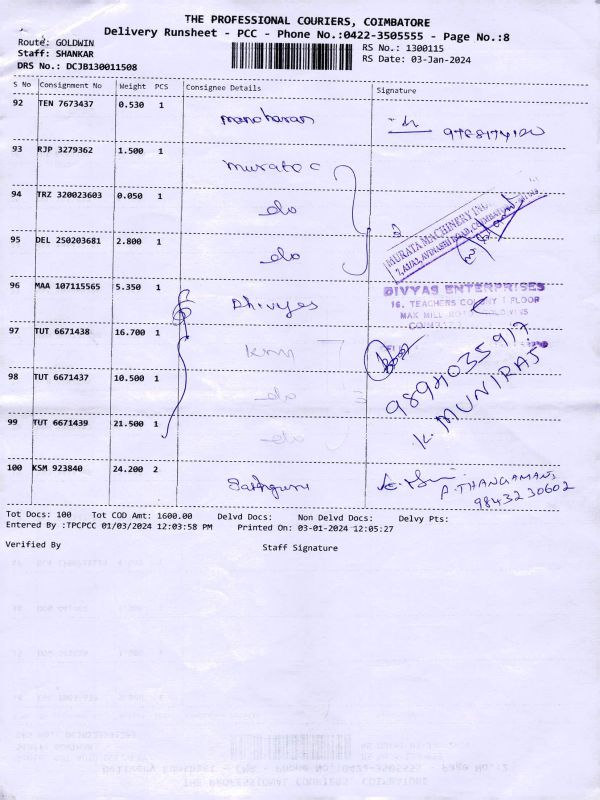 THE PROFESSIONAL COURIERS, COIMBATORE
Delivery Runsheet - PCC - Phone No.:0422-3505555 - Page No.:8
Route: GOLDWIN
RS No.: 1300115
Staff: SHANKAR
RS Date: 03-Jan-2024
DRS No.: DCJB130011508
S No Consignment No Weight PCS Consignee Details Signature
92 TEN 7673437 0.530 1 manoharan
93 RJP 3279362 1.500 1 murata c
94 TRZ 320023603 0.050 1 do
MURATA MACHINERY
95 DEL 250203681 2.800 1 do
96 MAA 107115565 5.350 1 Dhivyas
DIVYAS ENTERPRISES
16, TEACHERS COLONY I FLOOR
MAX MILL
97 TUT 6671438 16.700 1 kmy
9894035917
K. MUNIRAJ
98 TUT 6671437 10.500 1 do
99 TUT 6671439 21.500 1 do
100 KSM 923840 24.200 2 Sathguru
P. THANGAMANI
9843230602
Tot Docs: 100 Tot COD Amt: 1600.00 Delvd Docs: Non Delvd Docs: Delvy Pts:
Entered By :TPCPCC 01/03/2024 12:03:58 PM Printed On: 03-01-2024 12:05:27
Verified By Staff Signature